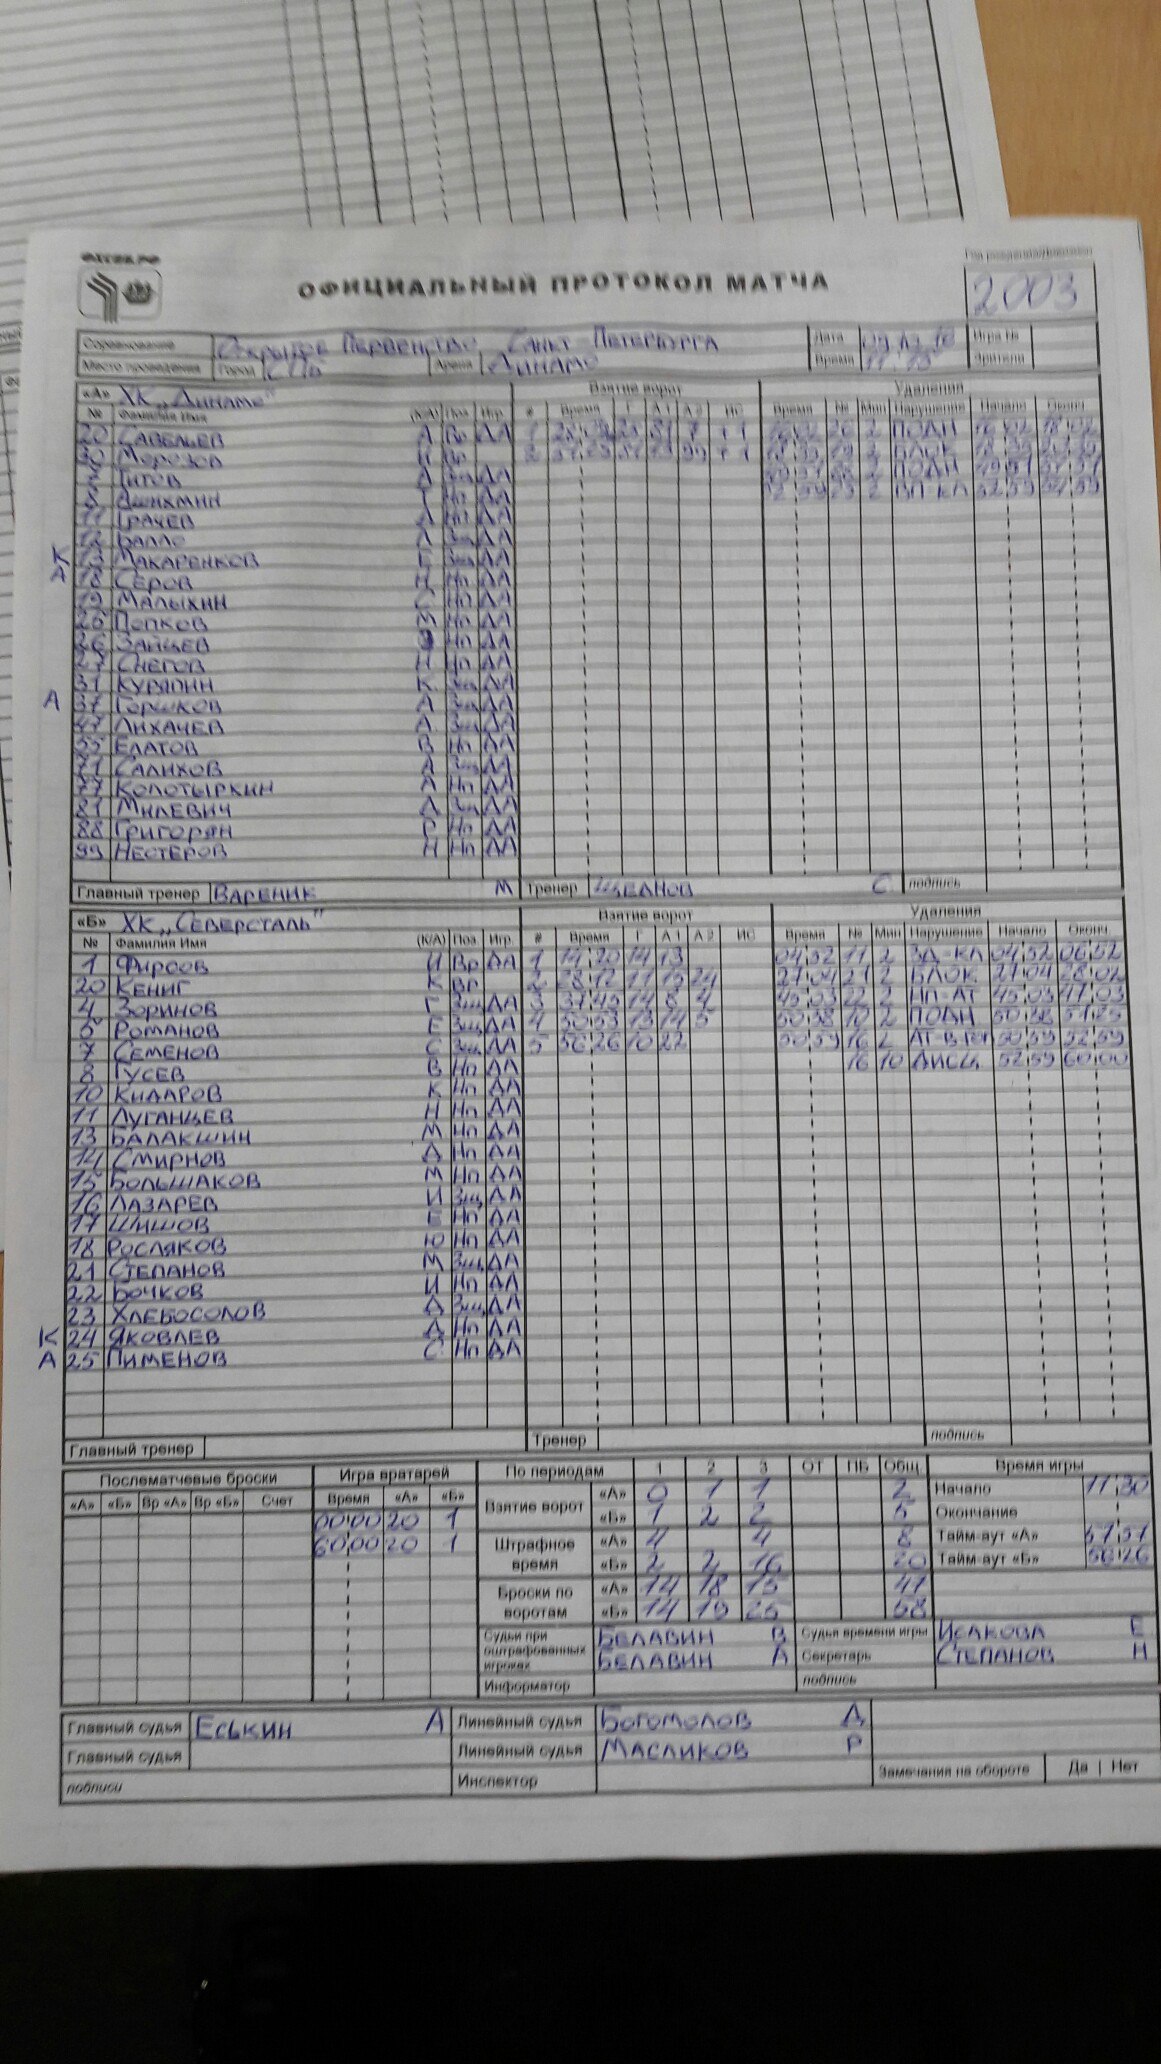 ФХСПБ.РФ
ОФИЦИАЛЬНЫЙ ПРОТОКОЛ МАТЧА
2003
Соревнование Открытое Первенство Санкт-Петербурга Дата Игра №
Место проведения Город СПб Арена Динамо Время 11.15 Зрители
«А» ХК „Динамо" Взятие ворот Удаления
№ Фамилия Имя (К/А) Поз Игр # Время Г А1 А2 ИС Время № Мин Нарушение Начало Оконч.
20 Савельев А Вр ДА 1 +1 2 ПОДН 16 02 18 02
30 Морозов Н Вр 2 +1 2 БЛОК
Титов А Зщ ДА 2 ПОДН 49 51 51 51
8 Вшихмин Т Нп ДА 2 52 59 54 59
11 Грачев Д Нп ДА
12 Балло Л Зщ ДА
К Макаренков Е Зщ ДА
А 18 Серов Н Нп ДА
19 Малыхин С Нп ДА
Попков М Нп ДА
26 Зайцев Нп ДА
27 Снегов Н Нп ДА
31 Куряпин К Зщ ДА
А 37 Горшков А Зщ ДА
47 Лихачев А Зщ ДА
55 Елатов В Нп ДА
71 Салихов А Зщ ДА
77 Колотыркин А Нп ДА
81 Милевич Д Зщ ДА
88 Григорян Р Нп ДА
99 Нестеров Н Нп ДА
Главный тренер Вареник М Тренер Щеднов С подпись
«Б» ХК „Северсталь" Взятие ворот Удаления
№ Фамилия Имя (К/А) Поз Игр # Время Г А1 А2 ИС Время № Мин Нарушение Начало Оконч.
1 Фирсов И Вр ДА 1 14 20 14 13 04 52 11 2 ЗД-КЛ 04 52 06 52
20 Кениг К Вр 2 28 12 11 15 24 27 04 21 2 БЛОК 27 04 28 02
4 Зоринов Г Зщ ДА 3 37 45 14 8 4 45 03 22 2 НП-АТ 45 03 47 03
5 Романов Е Зщ ДА 4 50 53 13 14 5 50 38 10 2 ПОДН 50 38 51 25
7 Семенов С Зщ ДА 5 56 26 10 22 50 59 16 2 50 59 52 59
8 Гусев В Нп ДА 16 10 ДИСЦ 52 59 60 00
10 Кидаров К Нп ДА
11 Луганцев Н Нп ДА
13 Балакшин М Нп ДА
14 Смирнов Д Нп ДА
15 Большаков М Нп ДА
16 Лазарев И Зщ ДА
17 Шишов Е Нп ДА
18 Росляков Ю Нп ДА
21 Степанов М Зщ ДА
22 Бочков И Нп ДА
23 Хлебосолов Д Зщ ДА
К 24 Яковлев Д Нп ДА
А 25 Пименов С Нп ДА
Главный тренер Тренер подпись
Послематчевые броски Игра вратарей По периодам 1 2 3 ОТ ПБ Общ. Время игры
«А» «Б» Вр «А» Вр «Б» Счет Время «А» «Б» Взятие ворот «А» 0 1 1 2 Начало 11 30
00 00 20 1 «Б» 1 2 2 5 Окончание
60 00 20 1 Штрафное время «А» 4 4 8 Тайм-аут «А» 57 57
«Б» 2 2 16 20 Тайм-аут «Б» 56 26
Броски по воротам «А» 14 18 15 47
«Б» 14 19 25 58
Судьи при оштрафованных игроках Белавин В Судья времени игры Исакова Е
Белавин А Секретарь Степанов Н
Информатор подпись
Главный судья Еськин А Линейный судья Богомолов Д
Главный судья Линейный судья Масликов Р
подписи Инспектор Замечания на обороте Да | Нет